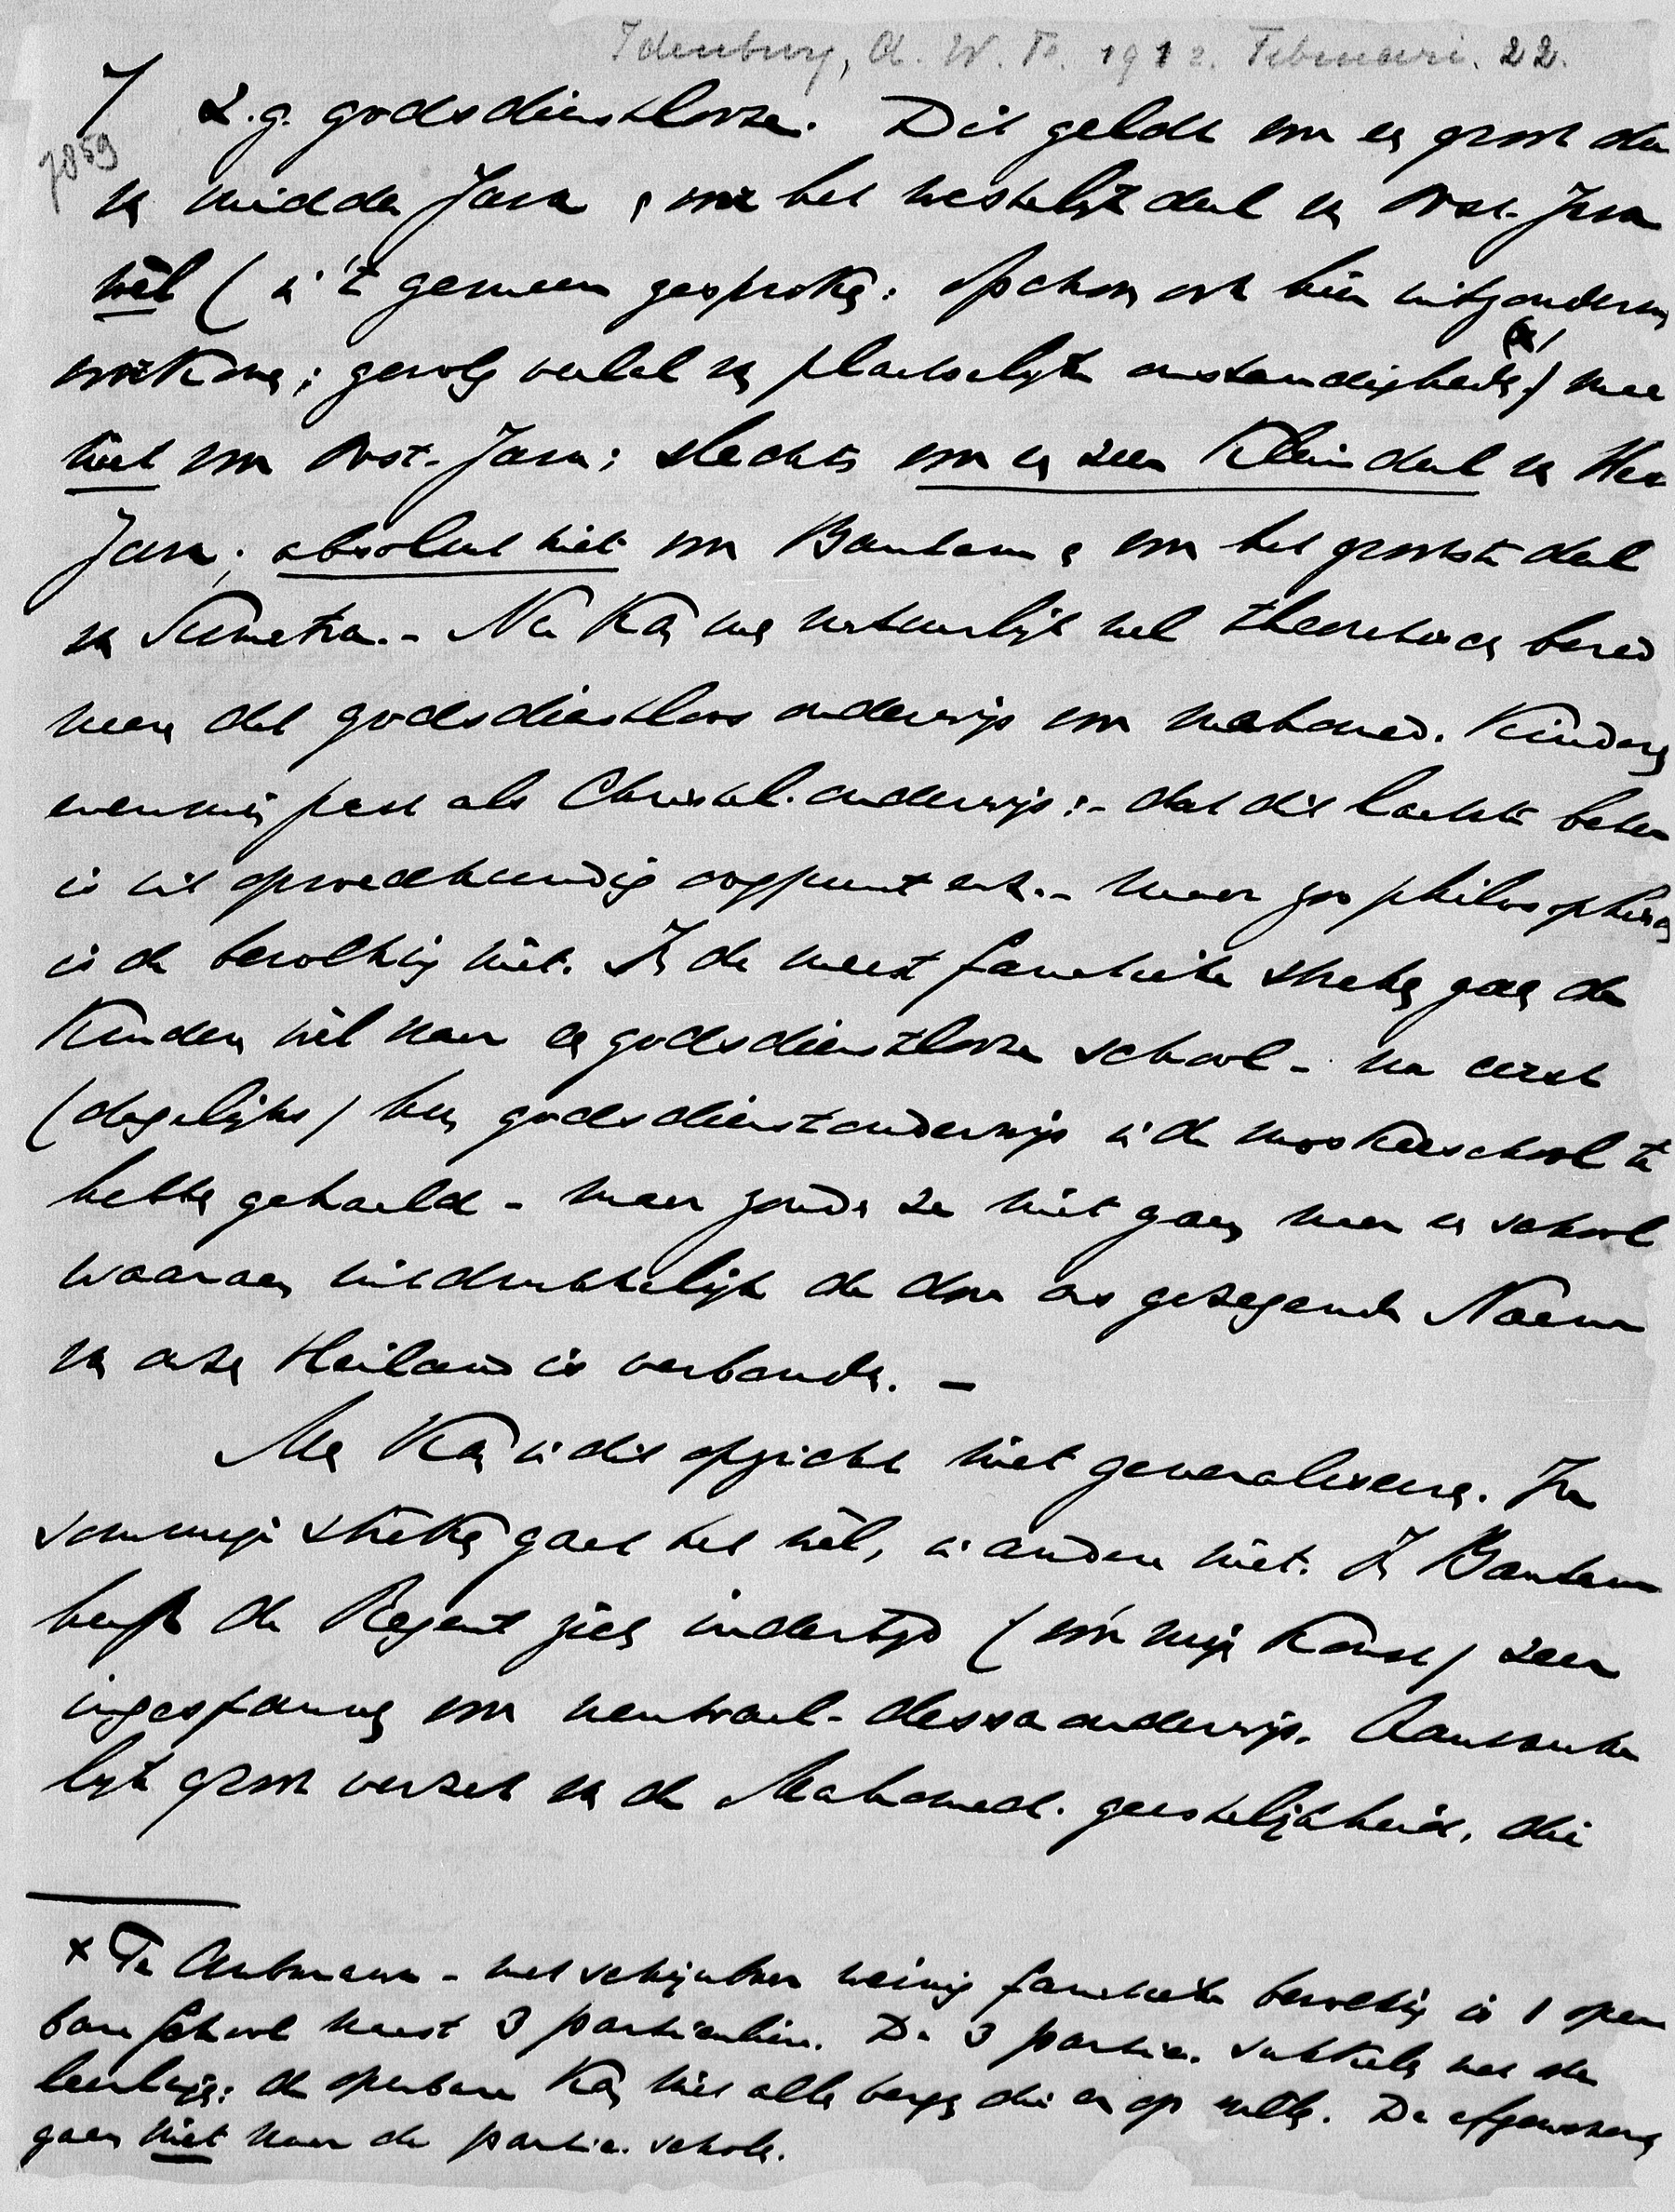 Idenburg, A. W. F. 1912. Februari. 22.
7 z.g. godsdienstlooze. Dit geldt voor een groot deel
7859
van midden Java, voor het westelijk deel van Oost-Java
wèl (in 't gemeen gesproken: ofschoon ook hier uitzonderingen
voorkomen; gevolg veelal van plaatselijke omstandigheden (x)) maar
niet voor Oost-Java; slechts voor een zeer klein deel van West
Java; absoluut niet voor Bantam en voor het grootste deel
van Sumatra. - Nu kan men natuurlijk wel theoretisch berede
neeren dat godsdienstloos onderwijs voor mahomed. kinderen
evenmin past als Christel. onderwijs; - dat dit laatste beter
is uit opvoedkundig oogpunt enz. - maar zoo philosophisch
is de bevolking niet. In de meest fanatieke streken gaan de
kinderen wèl naar een godsdienstlooze school - na eerst
(dagelijks) hun godsdienstonderwijs in de moskeeschool te
hebben gehaald - maar zouden ze niet gaan naar een school
waaraan uitdrukkelijk de door ons gezegende Naam
van onzen Heiland is verbonden. -
Men kan in dit opzicht niet generaliseeren. In
sommige streken gaat het wèl, in andere niet. In Bantam
heeft de Regent zich indertijd (vóór mijn komst) zeer
ingespannen voor neutraal-dessaonderwijs. Aanvanke
lijk groot verzet van de Mahomed. geestelijkheid, die
x Te - met schijnbaar weinig fanatieke bevolking is 1 open
bare school naast 3 particuliere. De 3 partic. sukkelen met de
leerlingen: de openbare kan niet alle bergen die er op willen. De afgewezenen
gaan niet naar de partic. scholen.